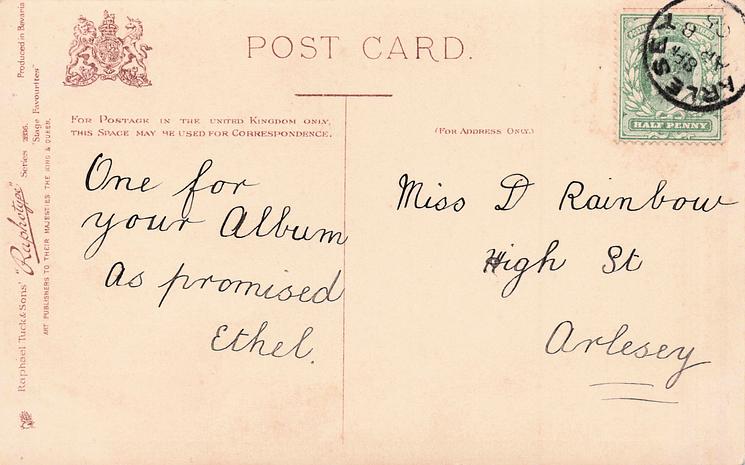 POST CARD.
FOR POSTAGE IN THE UNITED KINGDOM ONLY,
THIS SPACE MAY BE USED FOR CORRESPONDENCE.
(FOR ADDRESS ONLY.)
One for
your Album
as promised
Ethel.
Miss D Rainbow
High St
Arlesey
HALF PENNY
ARLESEY
Raphael Tuck & Sons' "Raphotype" Series
"Stage Favourites"
Produced in Bavaria
ART PUBLISHERS TO THEIR MAJESTIES THE KING & QUEEN.